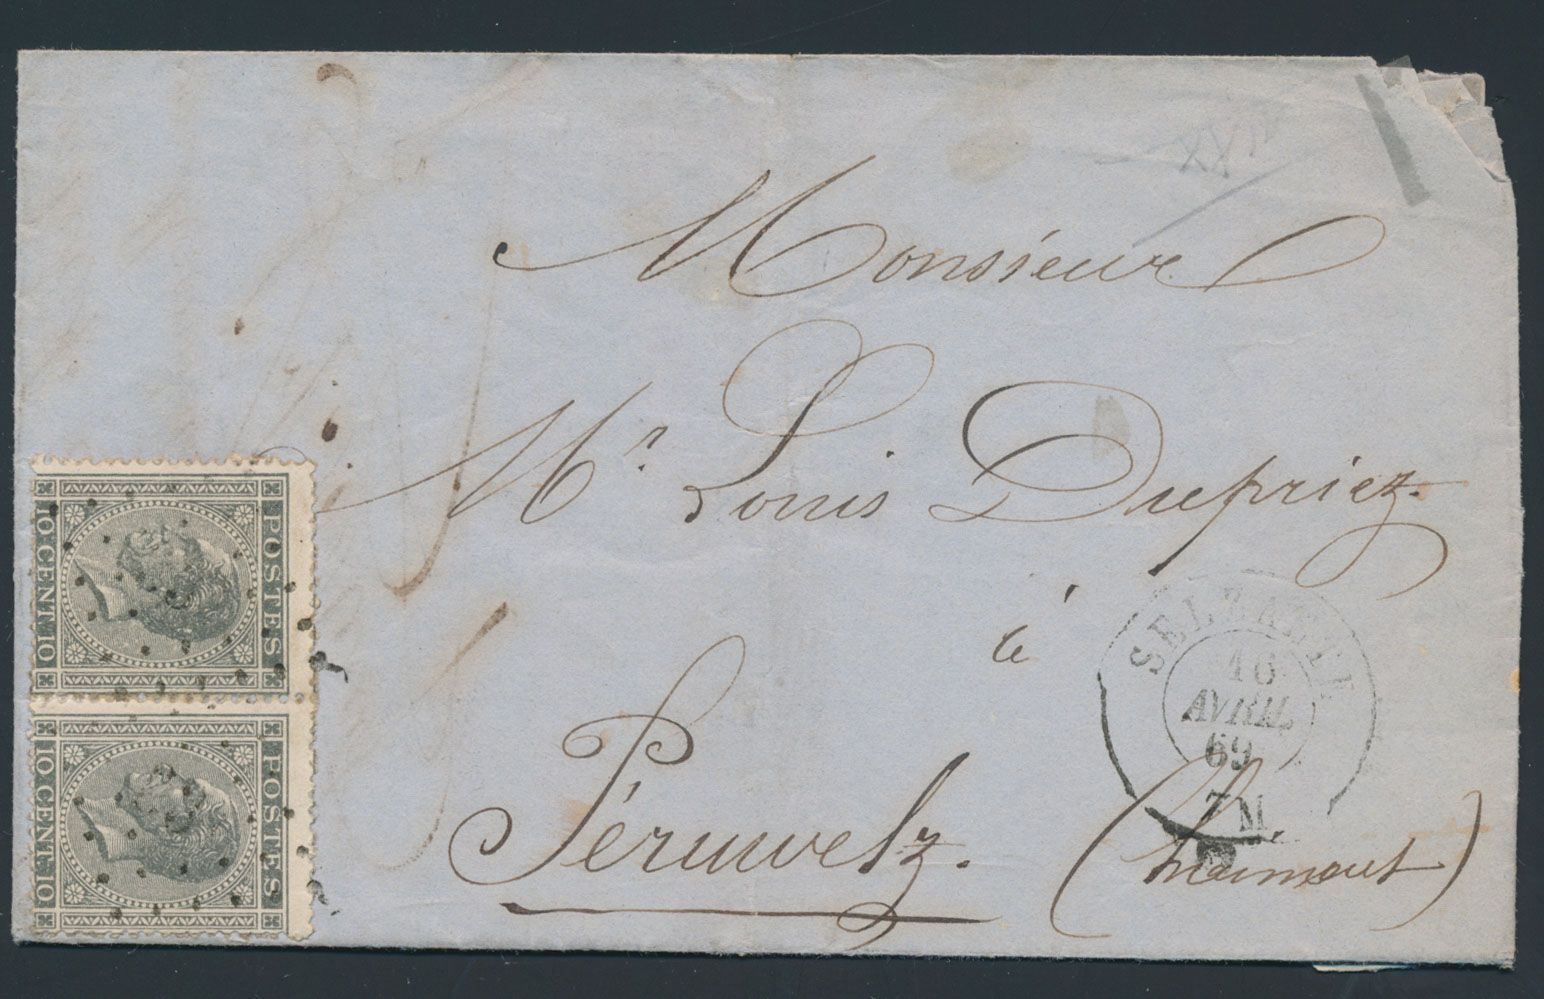 Monsieur
Mr. Louis Dupriez.
à
Péruwelz.
(Hainaut)
SELZAETE
16
AVRIL
69
7 M
POSTES
10 CENT. 10
POSTES
10 CENT. 10